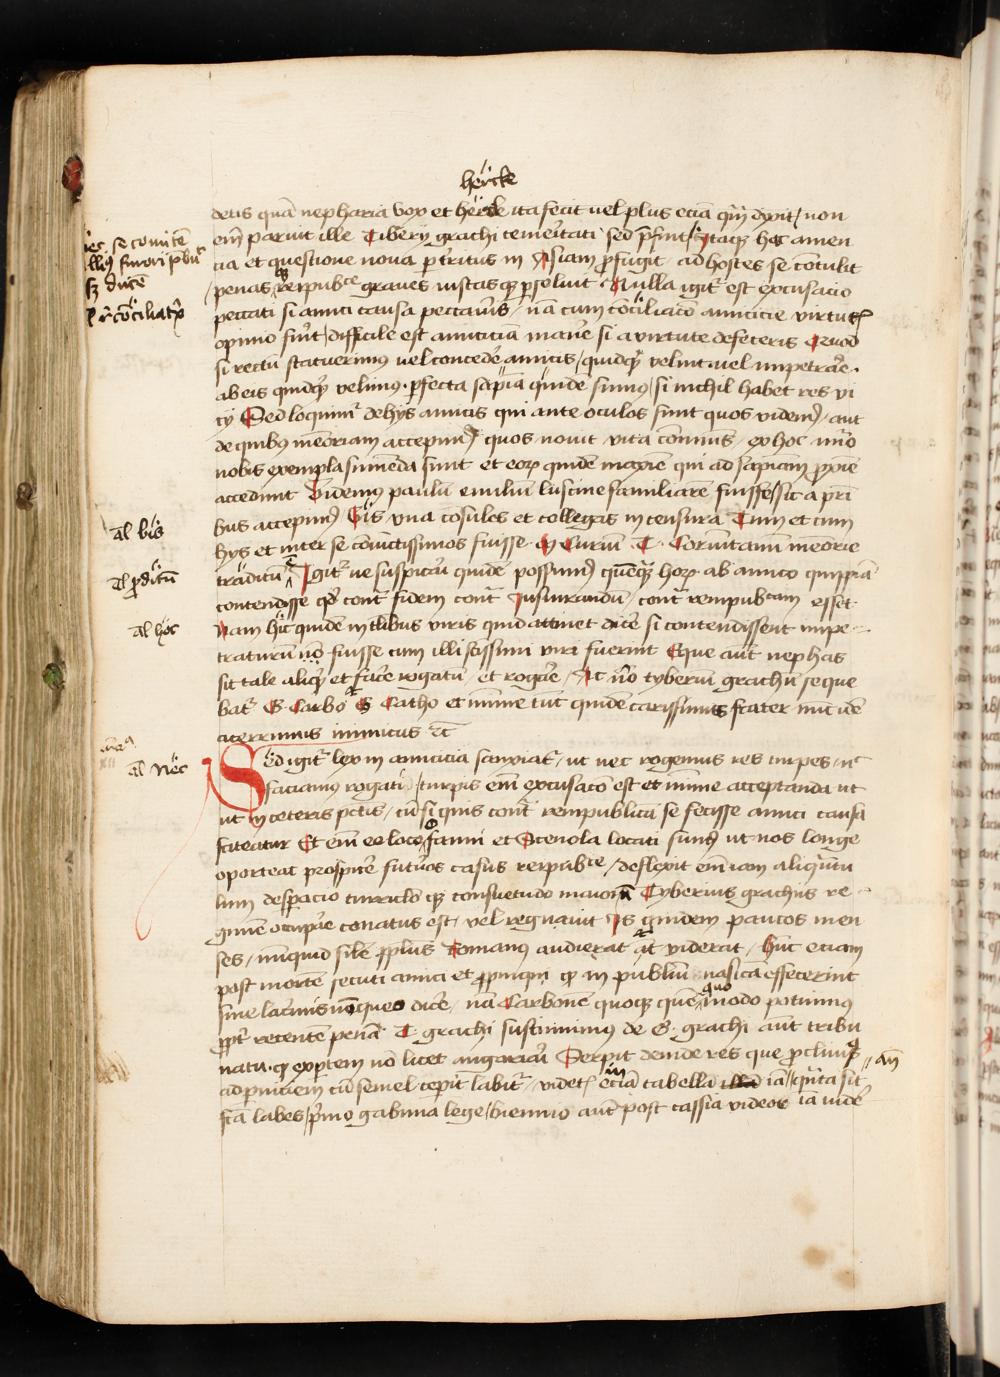 hercle
detis quā nepharia vox et hercle ita fecit vel plus eciā qͣm dixit / non
em̄ paruit ille Tiberij grachi temeritati sed p̄fuit Itaqꝫ hac amen
cia et questione noua ꝑtritus in Asiam ꝓfugit ad hostes se cōtulit
penas rerpublice graues iustasqꝫ ꝑsoluit Nulla igit̄ est excusacio
peccati si amici causa peccaueris / nā cum conciliacō amicicie virtutꝭ
opinio fuerit / difficile est amiciciā manere si a virtute defeceris Quod
si rectū statuerimus vel concedere amicis / quidqͥd velint vel impetrare
ab eis quidqͥd velimus ꝑfecta sapīa quidē simus / si nichil habet res vi
cij Sed loquimur de hijs amicis qui ante oculos sunt quos videmꝰ / aut
de quibus memoriam accepimꝰ quos nouit vita cōmunis / ex hoc nūo
nobis exempla sumēda sunt et eorꝝ quidē maxīe qui ad sapīam ꝓxīe
accedunt Videmus paulū emiliū luscine familiarē fuisse / sic a pri
bus accepimꝰ Gis vna cōsules et collegas in censura Tum et cum
hijs et inter se cōiūctissimos fuisse M Curiū T Corūcanū memorie
traditū Igit̄ ne suspicari quidē possumꝰ quēqͣ horꝝ ab amico quippiā
contendisse qd̄ contͣ fidem contͣ Iusiurandū contͣ rempublicam esset
Nam hic quidem in talibus viris quid attinet dicere si contendissent impe-
traturū nō fuisse cum illi sctissimi viri fuerint Eque aut nephas
sit tale aliqͥd et facere rogatū et rogare / At v̊o tyberiū grachū seque
bat̄ G Carbo G Catho et minime tūc quidē carissimus frater nūc idē
acerrimus inimicus etc̄
Sed igit̄ lex in amicicia sanxiat̄ / ut nec rogemus res turpes nec
faciamus rogati / turpis em̄ excusacō est et mīme acceptanda ut
ut in ceteris pctīs / cū si quis contͣ rempublicā se fecisse amici causa
fateatur Et em̄ eo loco fanni et Sceuola locati sumꝰ ut nos longe
oporteat prospicere futuros casus rerpublice / deflexit em̄ iam aliqͣntu
lum de spacio curriclōqꝫ consuetudo maiorū Tyberius grachus re-
gnūē occupare conatus est / vel regnauit Is quidem paucos men
ses / nūquid simile ꝓplus Romanꝰ audierat aut viderat / hūc eciam
post mortē secuti amici et ꝓpinqui qͥd in publiū nasicā effecerint
sine lacrimis nō queo dicere / nā Carbonē quoqꝫ quē quomodo potuimꝰ
ꝓpter recentē penā T grachi sustinuimꝰ de G grachi aut tribu
natu qd̄ exꝑtem nō licet auguriari Serpit deinde res que ꝓcliuis
ad pniciem cū semel cepit labit̄ / videtꝭ in eciā tabella illa iā / quāta sit
fcā labes / pͥmo gabinia lege / biennio aut post cassia videor iā vidē
al bis
al ꝓditū
al hec
al Nec
aut̄